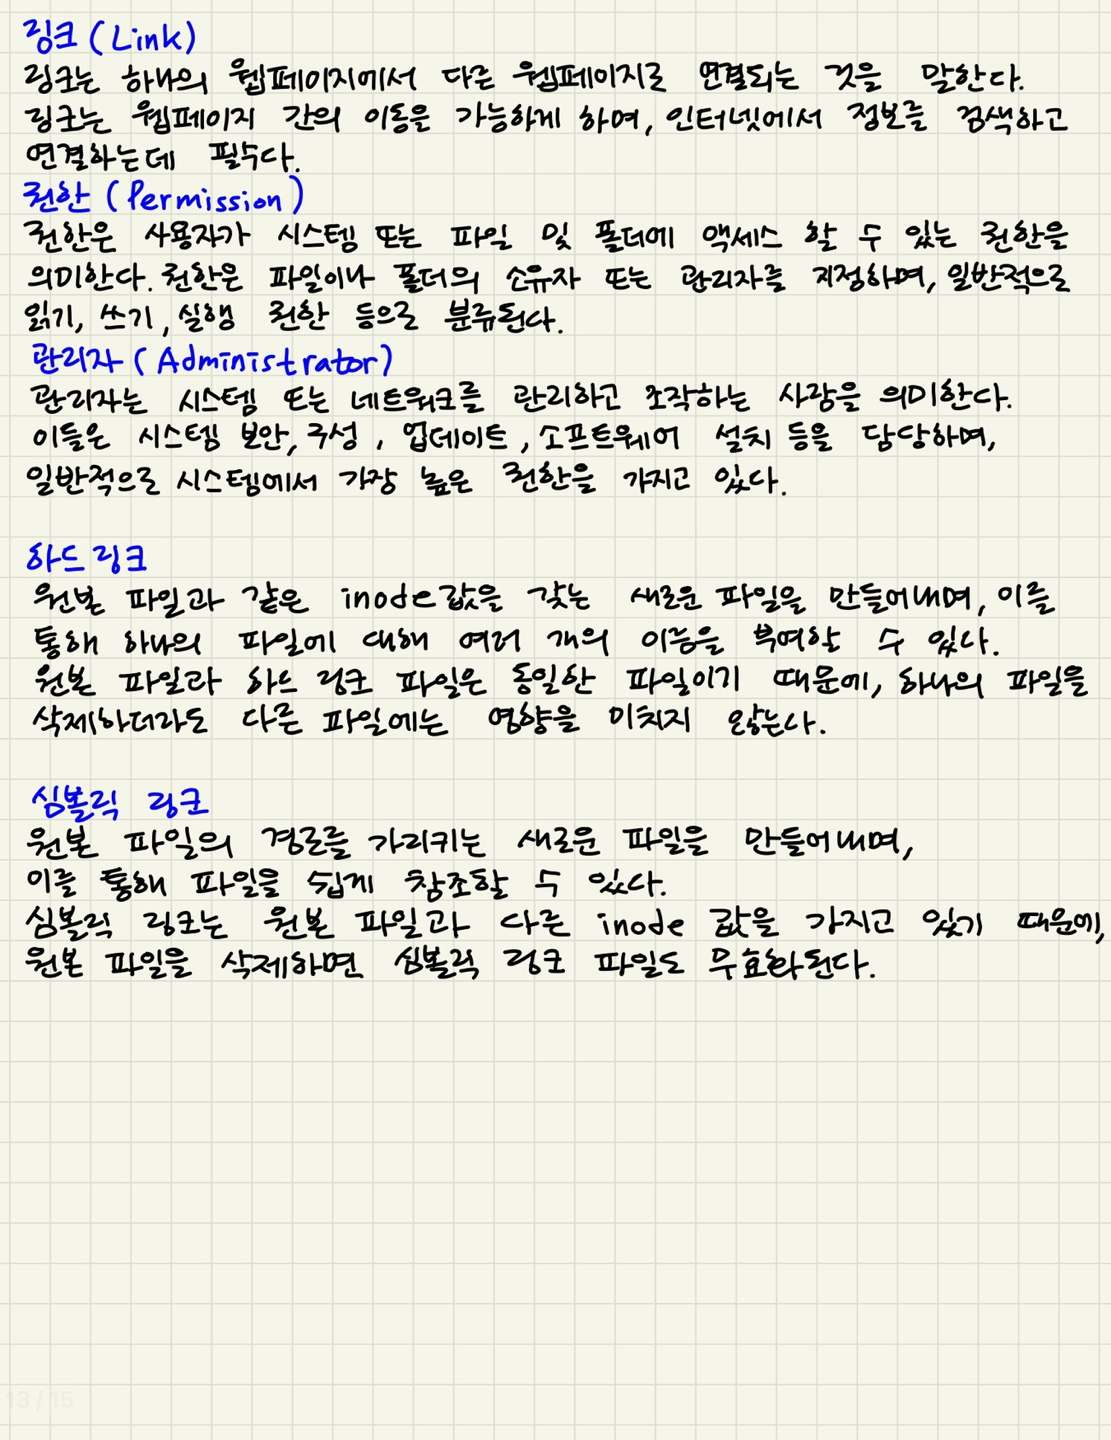 링크 (Link)
링크는 하나의 웹페이지에서 다른 웹페이지로 연결되는 것을 말한다.
링크는 웹페이지 간의 이동을 가능하게 하며, 인터넷에서 정보를 검색하고
연결하는데 필수다.
권한 (Permission)
권한은 사용자가 시스템 또는 파일 및 폴더에 액세스 할 수 있는 권한을
의미한다. 권한은 파일이나 폴더의 소유자 또는 관리자를 지정하며, 일반적으로
읽기, 쓰기, 실행 권한 등으로 분류된다.
관리자 (Administrator)
관리자는 시스템 또는 네트워크를 관리하고 조작하는 사람을 의미한다.
이들은 시스템 보안, 구성, 업데이트, 소프트웨어 설치 등을 담당하며,
일반적으로 시스템에서 가장 높은 권한을 가지고 있다.
하드 링크
원본 파일과 같은 inode값을 갖는 새로운 파일을 만들어내며, 이를
통해 하나의 파일에 대해 여러 개의 이름을 부여할 수 있다.
원본 파일과 하드 링크 파일은 동일한 파일이기 때문에, 하나의 파일을
삭제하더라도 다른 파일에는 영향을 미치지 않는다.
심볼릭 링크
원본 파일의 경로를 가리키는 새로운 파일을 만들어내며,
이를 통해 파일을 쉽게 참조할 수 있다.
심볼릭 링크는 원본 파일과 다른 inode 값을 가지고 있기 때문에,
원본 파일을 삭제하면 심볼릭 링크 파일도 무효화된다.
13 / 15